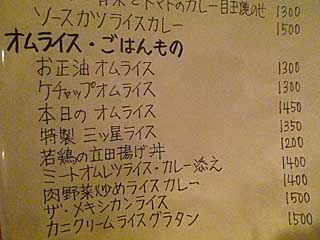 トマトのカレー目玉焼のせ 1300
ソースカツライスカレー 1500
オムライス・ごはんもの
お正油オムライス 1300
ケチャップオムライス 1300
本日のオムライス 1450
特製三ッ星ライス 1350
若鶏の立田揚げ丼 1200
ミートオムレツライス・カレー添え 1400
肉野菜炒めライスカレー 1400
ザ・メキシカンライス 1500
カニクリームライスグラタン 1500